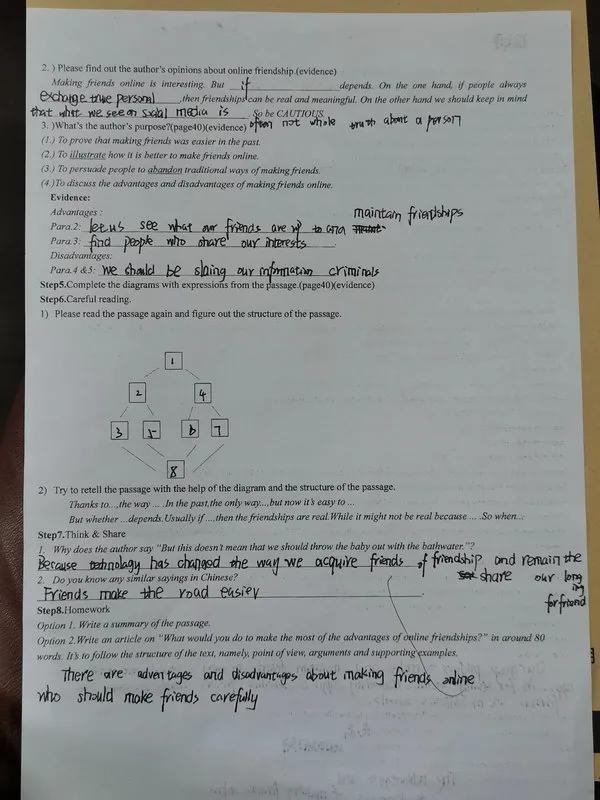 2. ) Please find out the author's opinions about online friendship.(evidence)
Making friends online is interesting. But if depends. On the one hand, if people always
exchange true personal ,then friendships can be real and meaningful. On the other hand we should keep in mind
that what we see on social media is So be CAUTIOUS.
3. )What's the author's purpose?(page40)(evidence) often not whole truth about a person
(1.) To prove that making friends was easier in the past.
(2.) To illustrate how it is better to make friends online.
(3.) To persuade people to abandon traditional ways of making friends.
(4.)To discuss the advantages and disadvantages of making friends online.
Evidence:
Advantages : maintain friendships
Para.2: let us see what our friends are up to and
Para.3: find people who share our interests
Disadvantages:
Para.4 &5: we should be slaing our information criminals
Step5.Complete the diagrams with expressions from the passage.(page40)(evidence)
Step6.Careful reading.
1) Please read the passage again and figure out the structure of the passage.
1
2 4
3 5 6 7
8
2) Try to retell the passage with the help of the diagram and the structure of the passage.
Thanks to...,the way ... .In the past,the only way...,but now it's easy to ...
But whether ...depends.Usually if ...,then the friendships are real.While it might not be real because ... .So when...
Step7.Think & Share
1. Why does the author say "But this doesn't mean that we should throw the baby out with the bathwater."?
Because technology has changed the way we acquire friends of friendship and remain the
2. Do you know any similar sayings in Chinese? share our long
ing
Friends make the road easier for friend
Step8.Homework
Option 1. Write a summary of the passage.
Option 2.Write an article on "What would you do to make the most of the advantages of online friendships?" in around 80
words. It's to follow the structure of the text, namely, point of view, arguments and supporting examples.
There are adventages and disadvantages about making friends online
who should make friends carefully